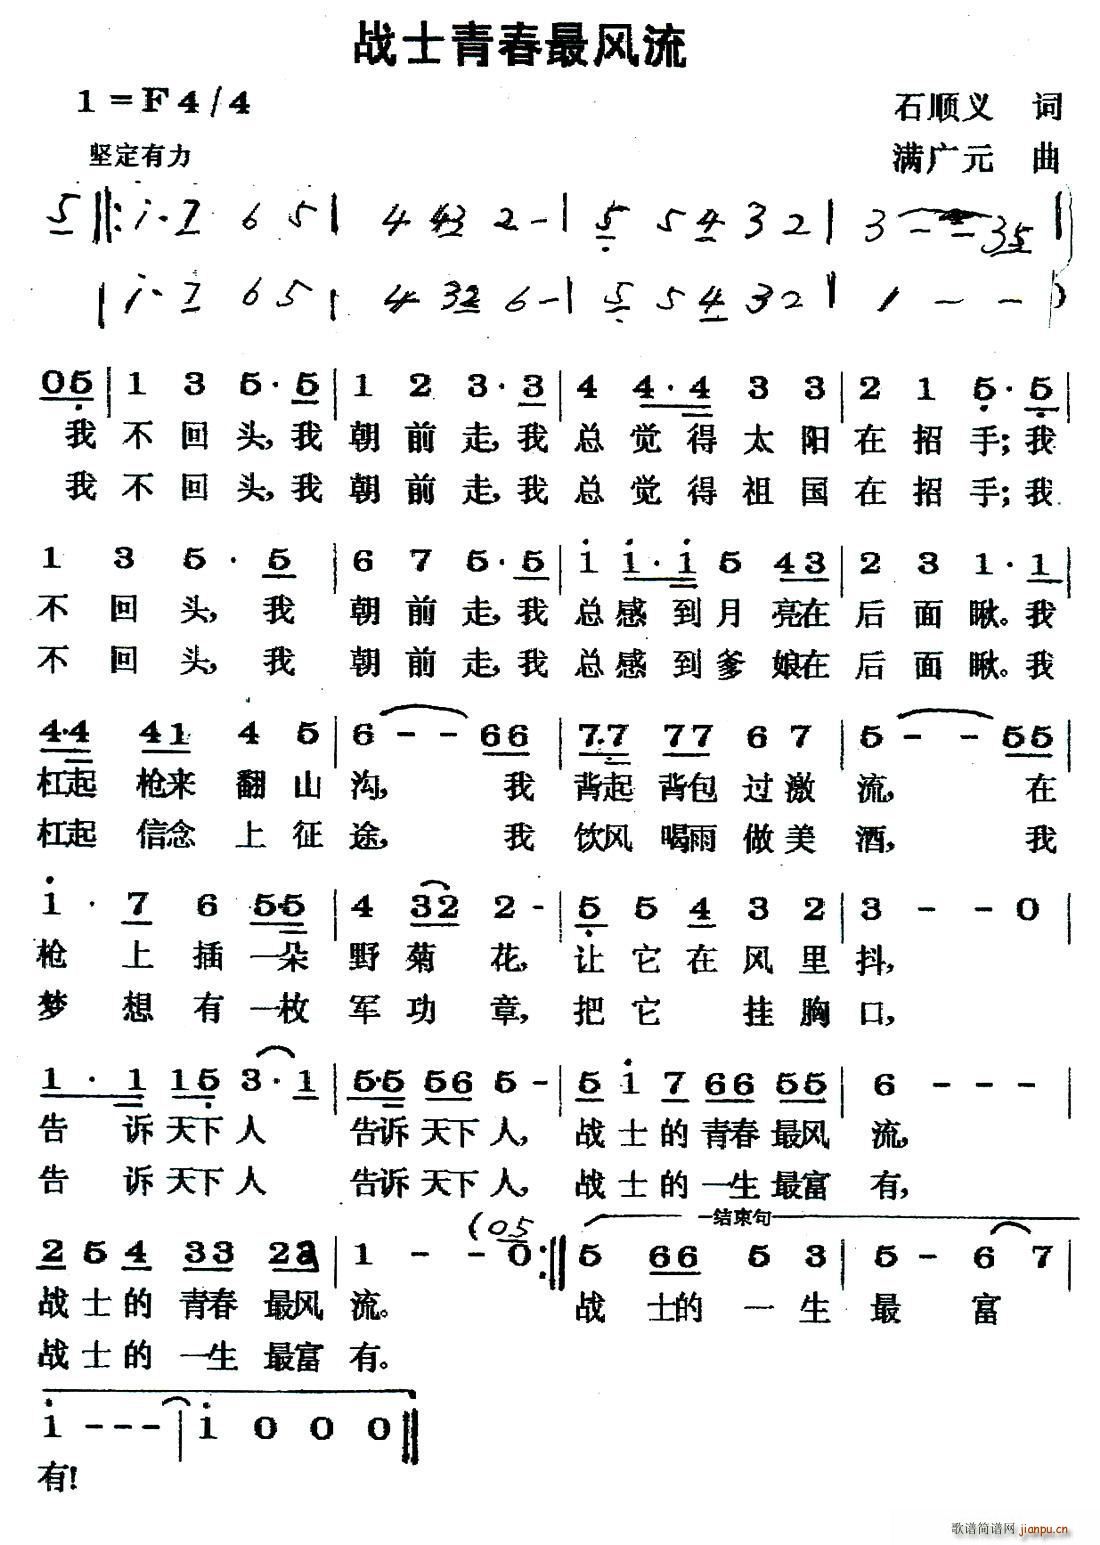 战士青春最风流
1=F4/4
石顺义 词
坚定有力
满广元 曲
5 ‖: i·7 6 5 | 4 43 2 - | 5 5 4 3 2 | 3 - - 35 |
| i·7 6 5 | 4 32 6 - | 5 5 4 3 2 | 1 - - )
05 | 1 3 5·5 | 1 2 3·3 | 4 4·4 3 3 | 2 1 5·5 |
我 不 回 头,我 朝 前 走,我 总 觉 得 太 阳 在 招 手;我
我 不 回 头,我 朝 前 走,我 总 觉 得 祖 国 在 招 手;我
1 3 5·5 | 6 7 5·5 | i i·i 5 43 | 2 3 1·1 |
不 回 头,我 朝 前 走,我 总 感 到 月 亮在 后 面 瞅。我
不 回 头,我 朝 前 走,我 总 感 到 爹 娘在 后 面 瞅。我
4·4 41 4 5 | 6 - - 66 | 7·7 77 6 7 | 5 - - 55 |
扛起 枪来 翻 山 沟, 我 背起 背包 过 激 流, 在
扛起 信念 上 征 途, 我 饮风 喝雨 做 美 酒, 我
i·7 6 5·5 | 4 32 2 - | 5 5 4 3 2 | 3 - - 0 |
枪 上 插 一朵 野 菊 花, 让 它 在 风 里 抖,
梦 想 有 一枚 军 功 章, 把 它 挂 胸 口,
1·1 15 3·1 | 5·5 56 5 - | 5 i 7 66 55 | 6 - - - |
告 诉 天下 人 告诉 天下 人, 战 士 的 青春 最风 流,
告 诉 天下 人 告诉 天下 人, 战 士 的 一生 最富 有,
(05 结束句
2 5 4 33 23 | 1 - - 0 :‖ 5 66 5 3 | 5 - 6 7 |
战 士 的 青春 最风 流。 战 士的 一 生 最 富
战 士 的 一生 最富 有。
i - - - | i 0 0 0 ‖
有!
歌谱简谱网 jianpu.cn